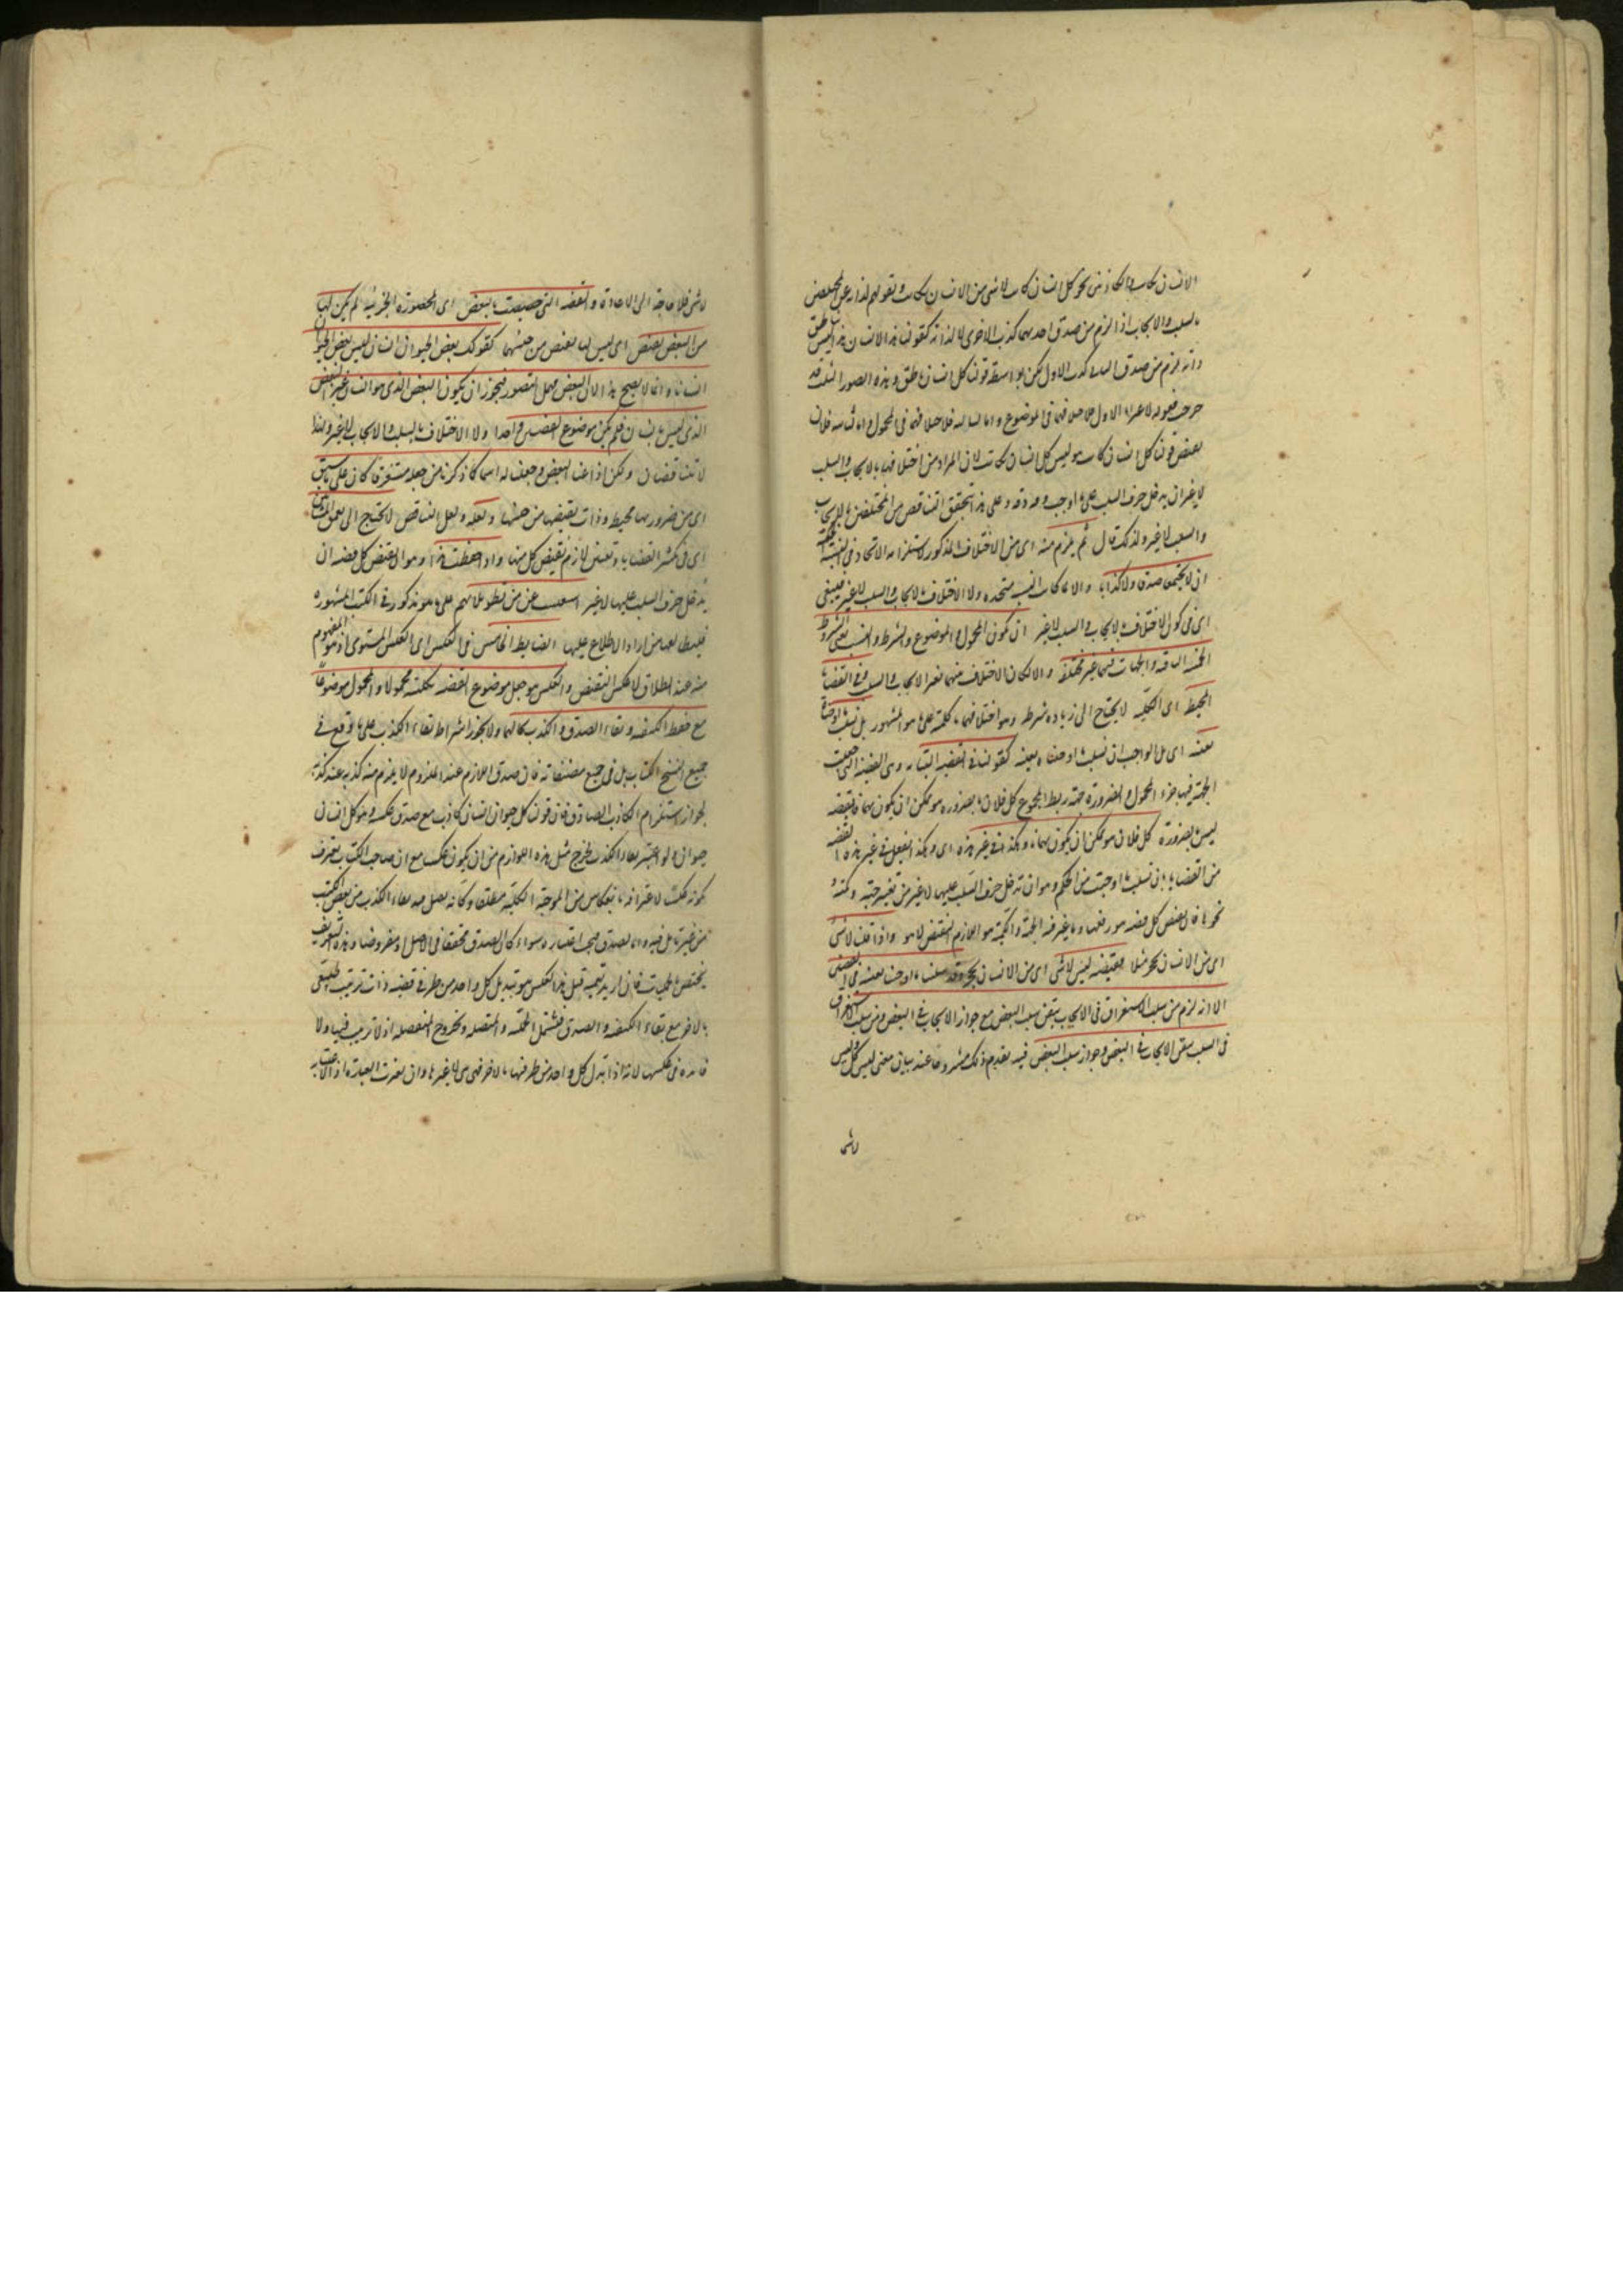 الانسان بكاتب والكاذبتين نحو كل انسان كاتب لا شئ من الانسان بكاتب وبقولهم لذاته عن المختلفين
بالسلب والايجاب اذا لزم من صدق احديهما كذب الاخرى لا لذاته كقولنا هذا الانسان هذا ليس بناطق
فانه يلزم من صدق كذب الاول لكن بواسطة قولنا كل انسان ناطق وهذه الصور الثلث قد
خرجت الاول فلاختلافهما في الموضوع واما فلاختلافهما في المحمول واما فلان
نقيض قولنا كل انسان كاتب هو ليس كل انسان كاتب لان المراد من اختلافهما بالايجاب والسلب
لا غير ان يدخل حرف السلب على ما اوجب وعلى هذا تحقق التناقض من المختلفين بالايجاب
والسلب لا غير ولذلك قال ثم يلزم منه اى من الاختلاف المذكور لاستلزامه الاتحاد في النسبة الحكمية
ان لا يجتمعا صدقا ولا كذبا والا لما كانت النسبة متحدة ولا الاختلاف بالايجاب والسلب لا غير فينبغى
اى في كون الاختلاف بالايجاب والسلب لا غير ان يكون المحمول والموضوع والشرط والنسب يعنى الشروط
الباقية والجهات فيهما غير مختلفة والا لكان الاختلاف منهما بغير الايجاب والسلب وفي القضايا
المحيطة اى الكلية لا يحتاج الى زيادة شرط وهو اختلافهما بالكلية على ما هو المشهور بل نسلب ما اوجبناه
بعينه اى بل الواجب ان نسلب ما اوجبناه بعينه كقولنا في القضية البتاتة وهى القضية التى جعلت
الجهة فيها جزء المحمول والضرورة جهة ربط المجموع كل فلان بالضرورة هو ممكن ان يكون بهمانا نقيضه
ليس بالضرورة كل فلان هو ممكن ان يكون بهمانا وكذا في غير هذه اى وكذا نفعل في غير هذه القضية
من القضايا بان نسلب ما اوجبت من الحكم وهو ان تدخل حرف السلب عليها لا غير من تغيير جهته وكميته
نحوها فان نقيض كل قضية هو رفعها وما يغير فيه الجهة والكمية هو اللازم النقيض لا هو واذا قلنا لا شئ
اى من الانسان بحجر مثلا فنقيضه ليس لا شئ اى من الانسان بحجر وقد سلبنا ما اوجبنا بعينه في القضيتين
الا انه لزم من سلب الاستغراق في الايجاب تيقن سلب البعض مع جواز الايجاب في البعض ومن سلب الاستغراق
في السلب تيقن الايجاب في البعض وجواز سلب البعض فيه تقدم ذلك مشروحا عند بيان معنى ليس كل وليس
لا شئ
لا شئ فلا حاجة الى الاعادة والقضية التى خصصت بالبعض اى المحصورة الجزئية لم يكن لها
من البعض نقيض اى ليس لها نقيض من جنسها كقولك بعض الحيوان انسان ليس بعض الحيوان
انسانا وانما لا يصح هذا لان البعض مهمل التصور فيجوز ان يكون البعض الذى هو انسان غير البعض
الذى ليس بانسان فلم يكن موضوع القضيتين واحدا ولا الاختلاف بالسلب والايجاب لا غير ولهذا
لا تتناقضان ولكن اذا عينا البعض وجعلنا له اسما كما ذكرنا من جعله مستغرقا كان على ما سبق
اى من ضرورتها محيطة وذات نقيضها من جنسها ولعله ولعل التناقض لا يحتاج الى تعمق المشائين
اى في كثير القضايا وتعيين لازم نقيض كل منها واذا حفظت هذا وهو ان نقيض كل قضية ان
يدخل حرف السلب عليها لا غير استغنيت عن من تطويلاتهم على ما هو مذكور في الكتب المشهورة
من اراد الاطلاع عليها الضابط الخامس في العكس اى العكس المستوى اذ هو المفهوم
منه عند اطلاق لا عكس النقيض والعكس هو جعل موضوع القضية بكليته محمولا والمحمول موضوعا
مع حفظ الكيفية وبقاء الصدق والكذب بحالهما ولا يجوز اشتراط بقاء الكذب على ما وقع في
جميع النسخ الكتاب بل في جميع مصنفاته فان صدق اللازم عند الملزوم لا يلزم منه كذبه عند كذبه
لجواز استلزام الكاذب الصادق فان قولنا كل حيوان انسان كاذب مع صدق عكسه وهو كل انسان
حيوان ولو اعتبر بقاء الكذب لخرج مثل هذه اللوازم من ان يكون عكسا مع ان صاحب الكتاب يعترف
بكونه عكسا لاعترافه بانعكاس من الموجبة الكلية مطلقا وكانه نقل بقاء الكذب من بعض الكتب
من غير تامل فيه واما الصدق فيجب اعتباره سواء كان الصدق محققا في الاصل او مفروضا وهذه التعريف
يختص بالحمليات فان اريد تعميمه قيل هذا العكس هو تبديل كل واحد من طرفي قضية ذات ترتيب طبيعى
بالاخر مع بقاء الكيفية والصدق فيشتمل الحملية والمتصلة ويخرج المنفصلة اذ لا ترتيب فيها ولا
فائدة في عكسها لانه اذا تبدل كل واحد من طرفيها بالاخر فهى هى لا غيرها وان تغيرت العبارة اذ